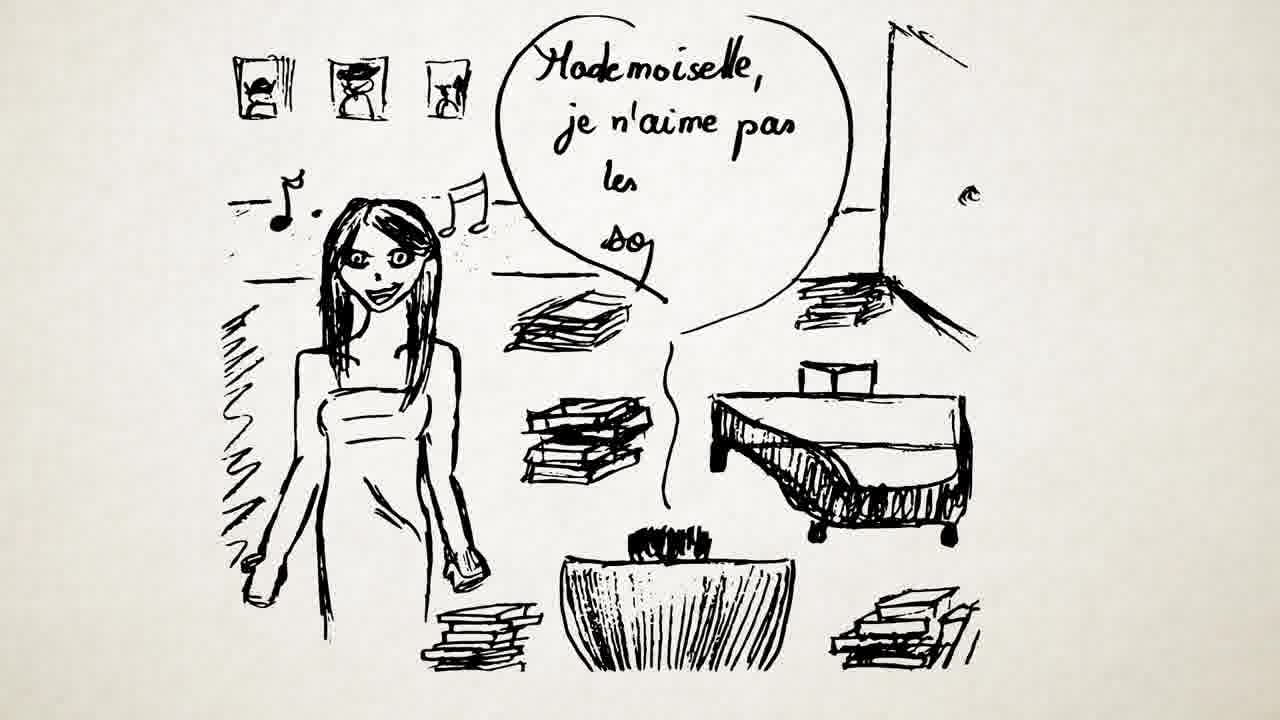 Mademoiselle,
je n'aime pas
les
so